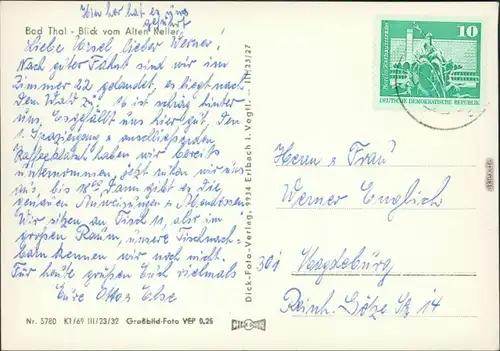 Hierher hat es uns
geführt
Bad Thal - Blick vom Alten Keller
Liebe Ursel lieber Werner!
Nach guter Fahrt sind wir im
Zimmer 22 gelandet, es liegt nach
dem Wald zu, 16 ist schräg hinter
uns. Es gefällt uns hier gut. Den
1. Spaziergang u. anschließenden
Kaffee haben wir bereits
unternommen, jetzt ruhen wir uns
aus, bis 18 00 Dann gibt es die
genauen Anweisungen u. Abendessen.
Wir sitzen an Tisch 11, also im
großen Raum, unsere Tischnach-
barn kennen wir noch nicht.
Für heute grüßen Euch vielmals
Eure Ottos Else
Nr. 5780 K1/69 III/23/32 Großbild-Foto VEP 0,25
Dick-Foto-Verlag, 9934 Erlbach i. Vogtl. — III/23/27
10
DEUTSCHE DEMOKRATISCHE REPUBLIK
Herrn u Frau
Werner Englich
301 Magdeburg
Reinh. Götze Str 14